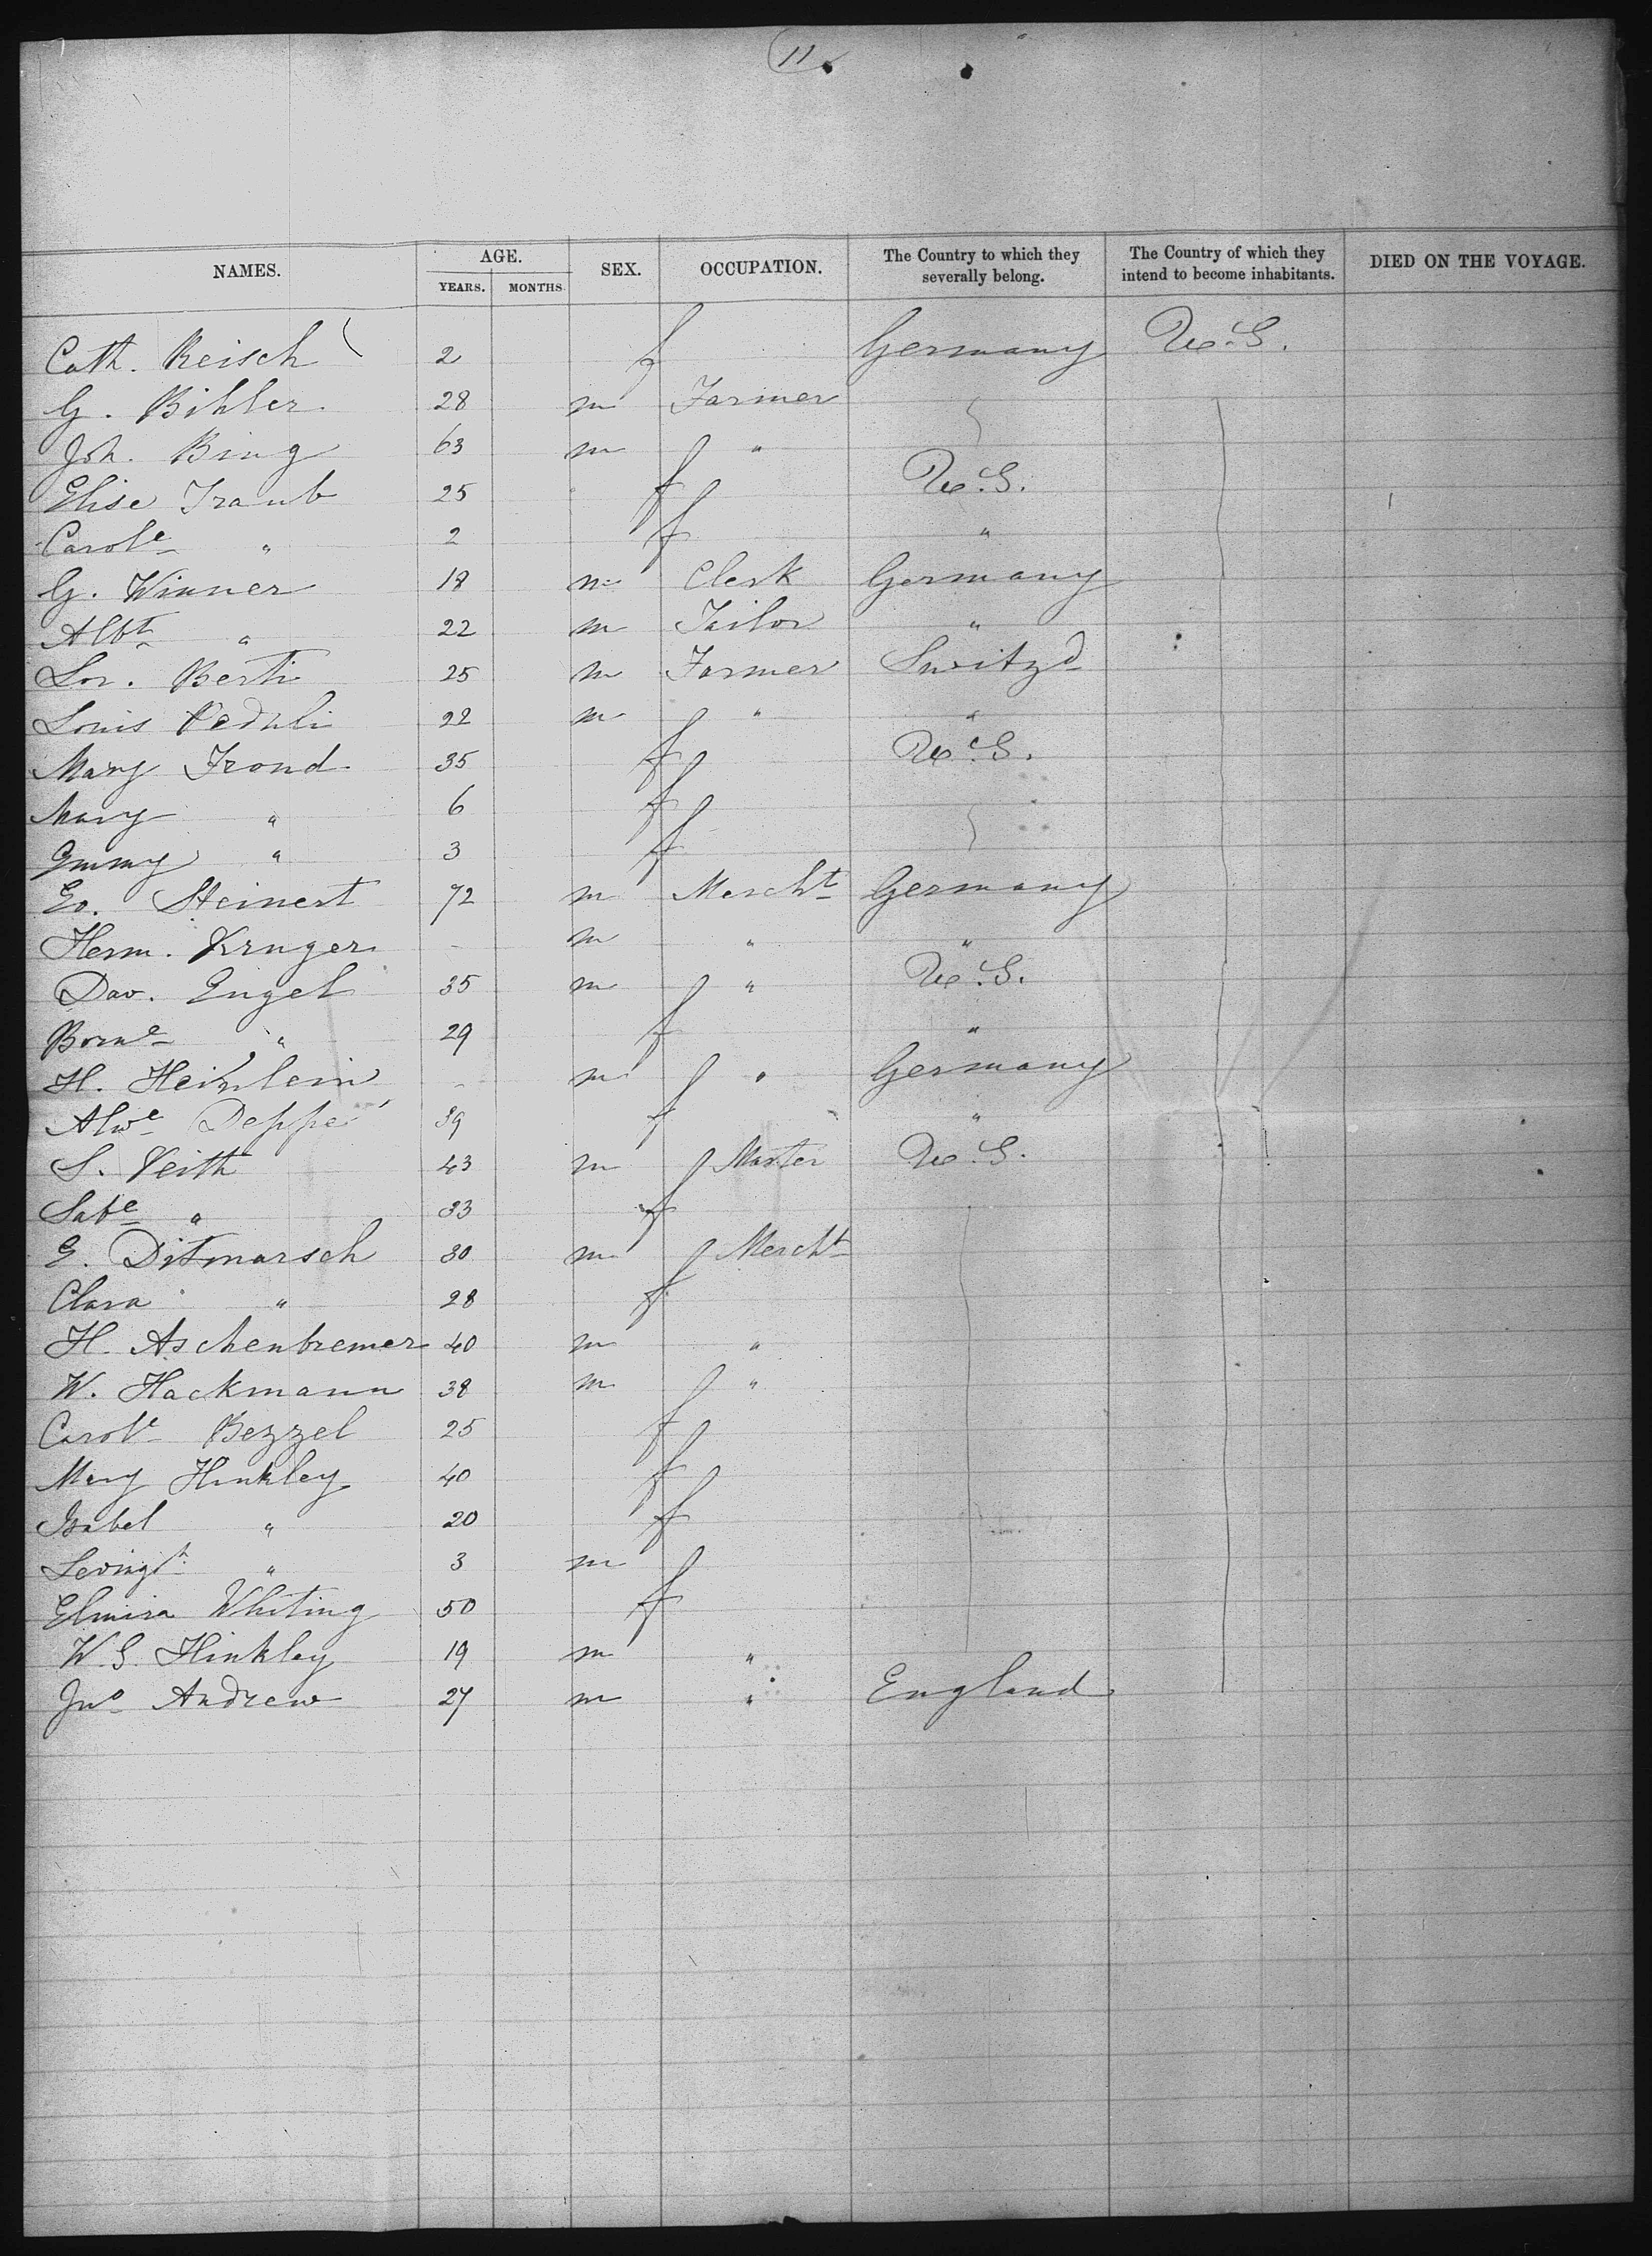 11.
NAMES. AGE. YEARS. MONTHS SEX. OCCUPATION. The Country to which they severally belong. The Country of which they intend to become inhabitants. DIED ON THE VOYAGE.
Cath. Reisch 2 f Germany U.S.
G. Bihler 28 m Farmer
Joh. Bing 63 m "
Elise Traub 25 f U.S.
Carole " 2 f "
G. Winner 18 m Clerk Germany
Albt " 22 m Tailor "
Lor. Berti 25 m Farmer Switzd
Louis Pedruli 22 m " "
Mary Frond 35 f U.S.
Mary " 6 f
Emmy " 3 f
Ed. Steinert 72 m Mercht Germany
Herm. Kruger - m " "
Dav. Engel 35 m " U.S.
" 29 f "
H. Heinlein - m " Germany
Alwe Deppe 39 f "
S. Veith 43 m U.S.
Sabe " 33 f
G. Ditmarsch 30 m Mercht
Clara " 28 f
H. Aschenbremer 40 m "
W. Hackmann 38 m "
Carole Bezzel 25 f
Mary Hinkley 40 f
Isabel " 20 f
Levingt " 3 m
Elmira Whiting 50 f
W.S. Hinkley 19 m "
Jno Andrew 27 m " England